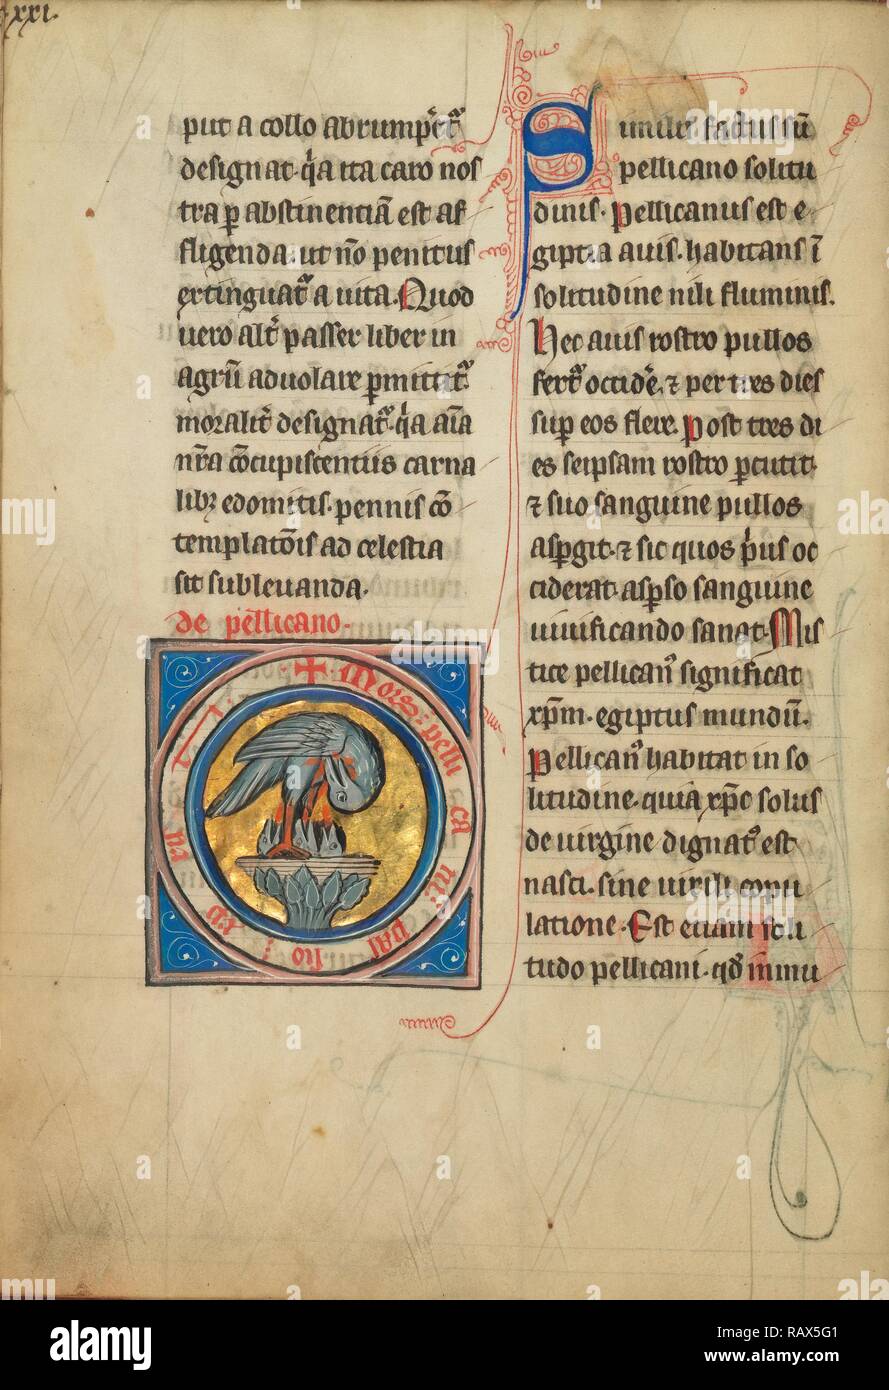 xxi.
put a collo abrump̃et᷒
designat· q̈a ita caro nos
tra ꝑ abstinentiã est af
fligenda· ut nõ penitus
extinguat᷒ a uita. Quod
uero alt̾ passer liber in
agrũ aduolare ꝑmittit᷒·
moralit̾ designat᷒· q̈a aĩa
nr̃a cõcupiscentiis carna
libꝫ edomitis· pennis cõ
templatõis ad celestia
sit subleuanda.
de pellicano.
✝ Mors : pelli ca ni : pas sio : xp̃
Similis factus sũ
pellicano solitu
dinis· Pellicanus est e
giptia auis· habitans ĩ
solitudine nili fluminis.
Hec auis rostro pullos
fert᷒ occide᷒, ⁊ per tres dies
suꝑ eos flere. Post tres di
es seipsam rostro ꝑcutit·
⁊ suo sanguine pullos
asp̱git· ⁊ sic quos p̾us oc
ciderat· asꝑso sanguine
uiuificando sanat· Mis
tice pellican᷒ significat
xp̃m· egiptus mundũ.
Pellican᷒ habitat in so
litudine· quia xp̃c solus
de uirgine dignat᷒ est
nasci· sine uirili copu
latione· Est etiam soli
tudo pellicani· qd̾ inmu
alamy
Image ID: RAX5G1
www.alamy.com